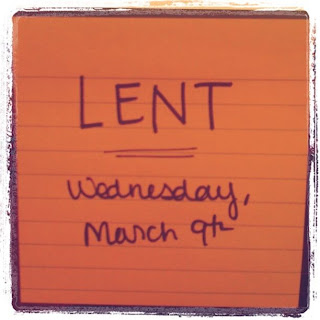 LENT
Wednesday,
March 9th